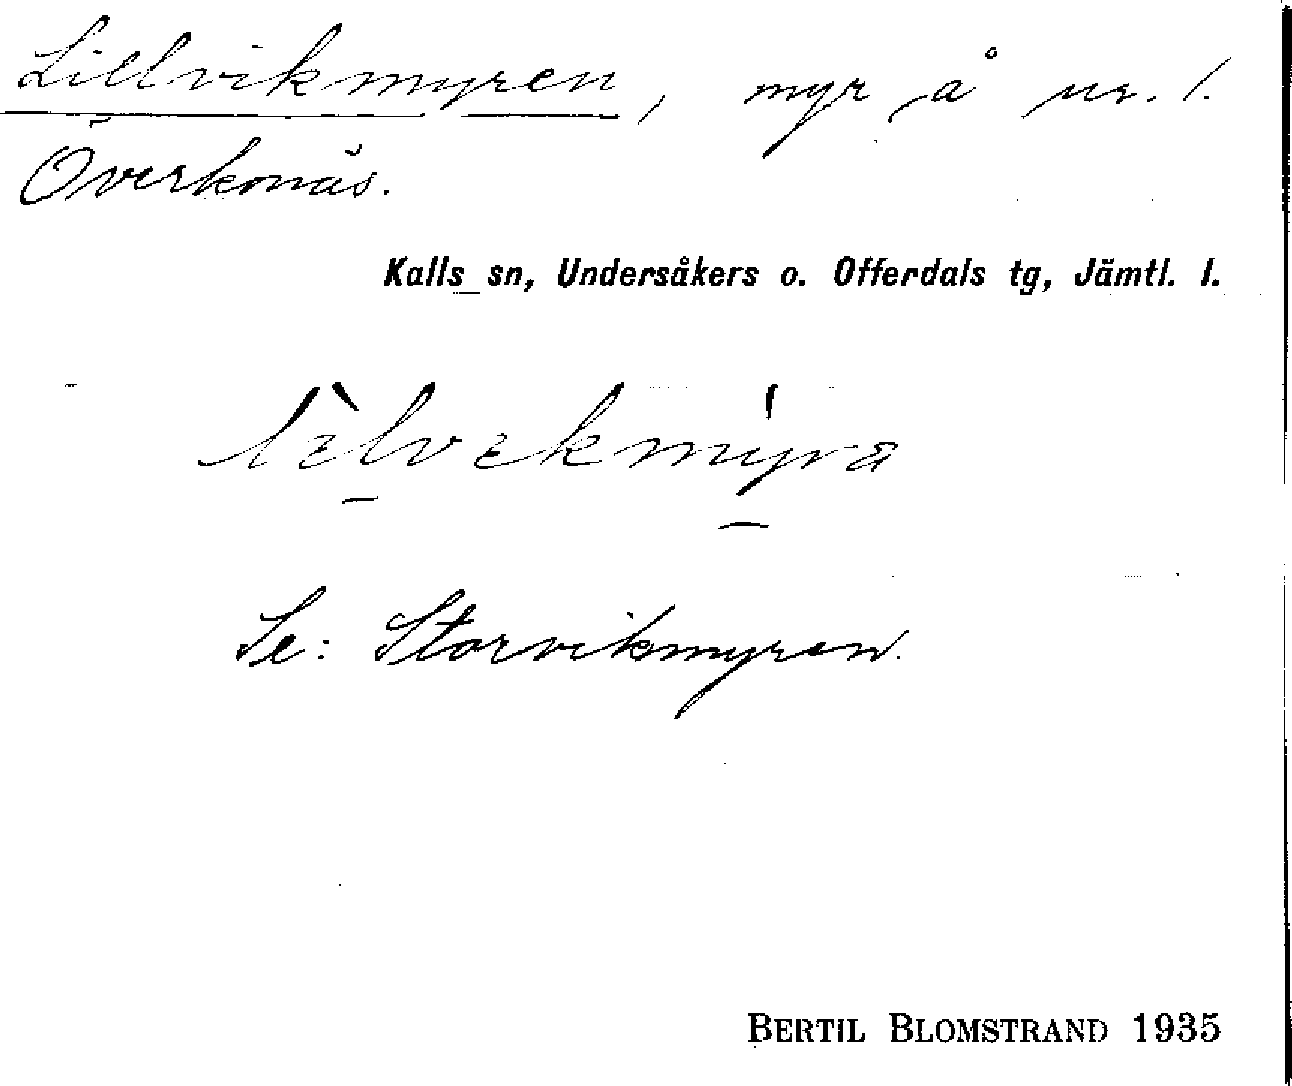 Lillvikmyren, myr å nr. 1.
Överkonäs.
Kalls sn, Undersåkers o. Offerdals tg, Jämtl. l.
Se: Storvikmyren.
BERTIL BLOMSTRAND 1935